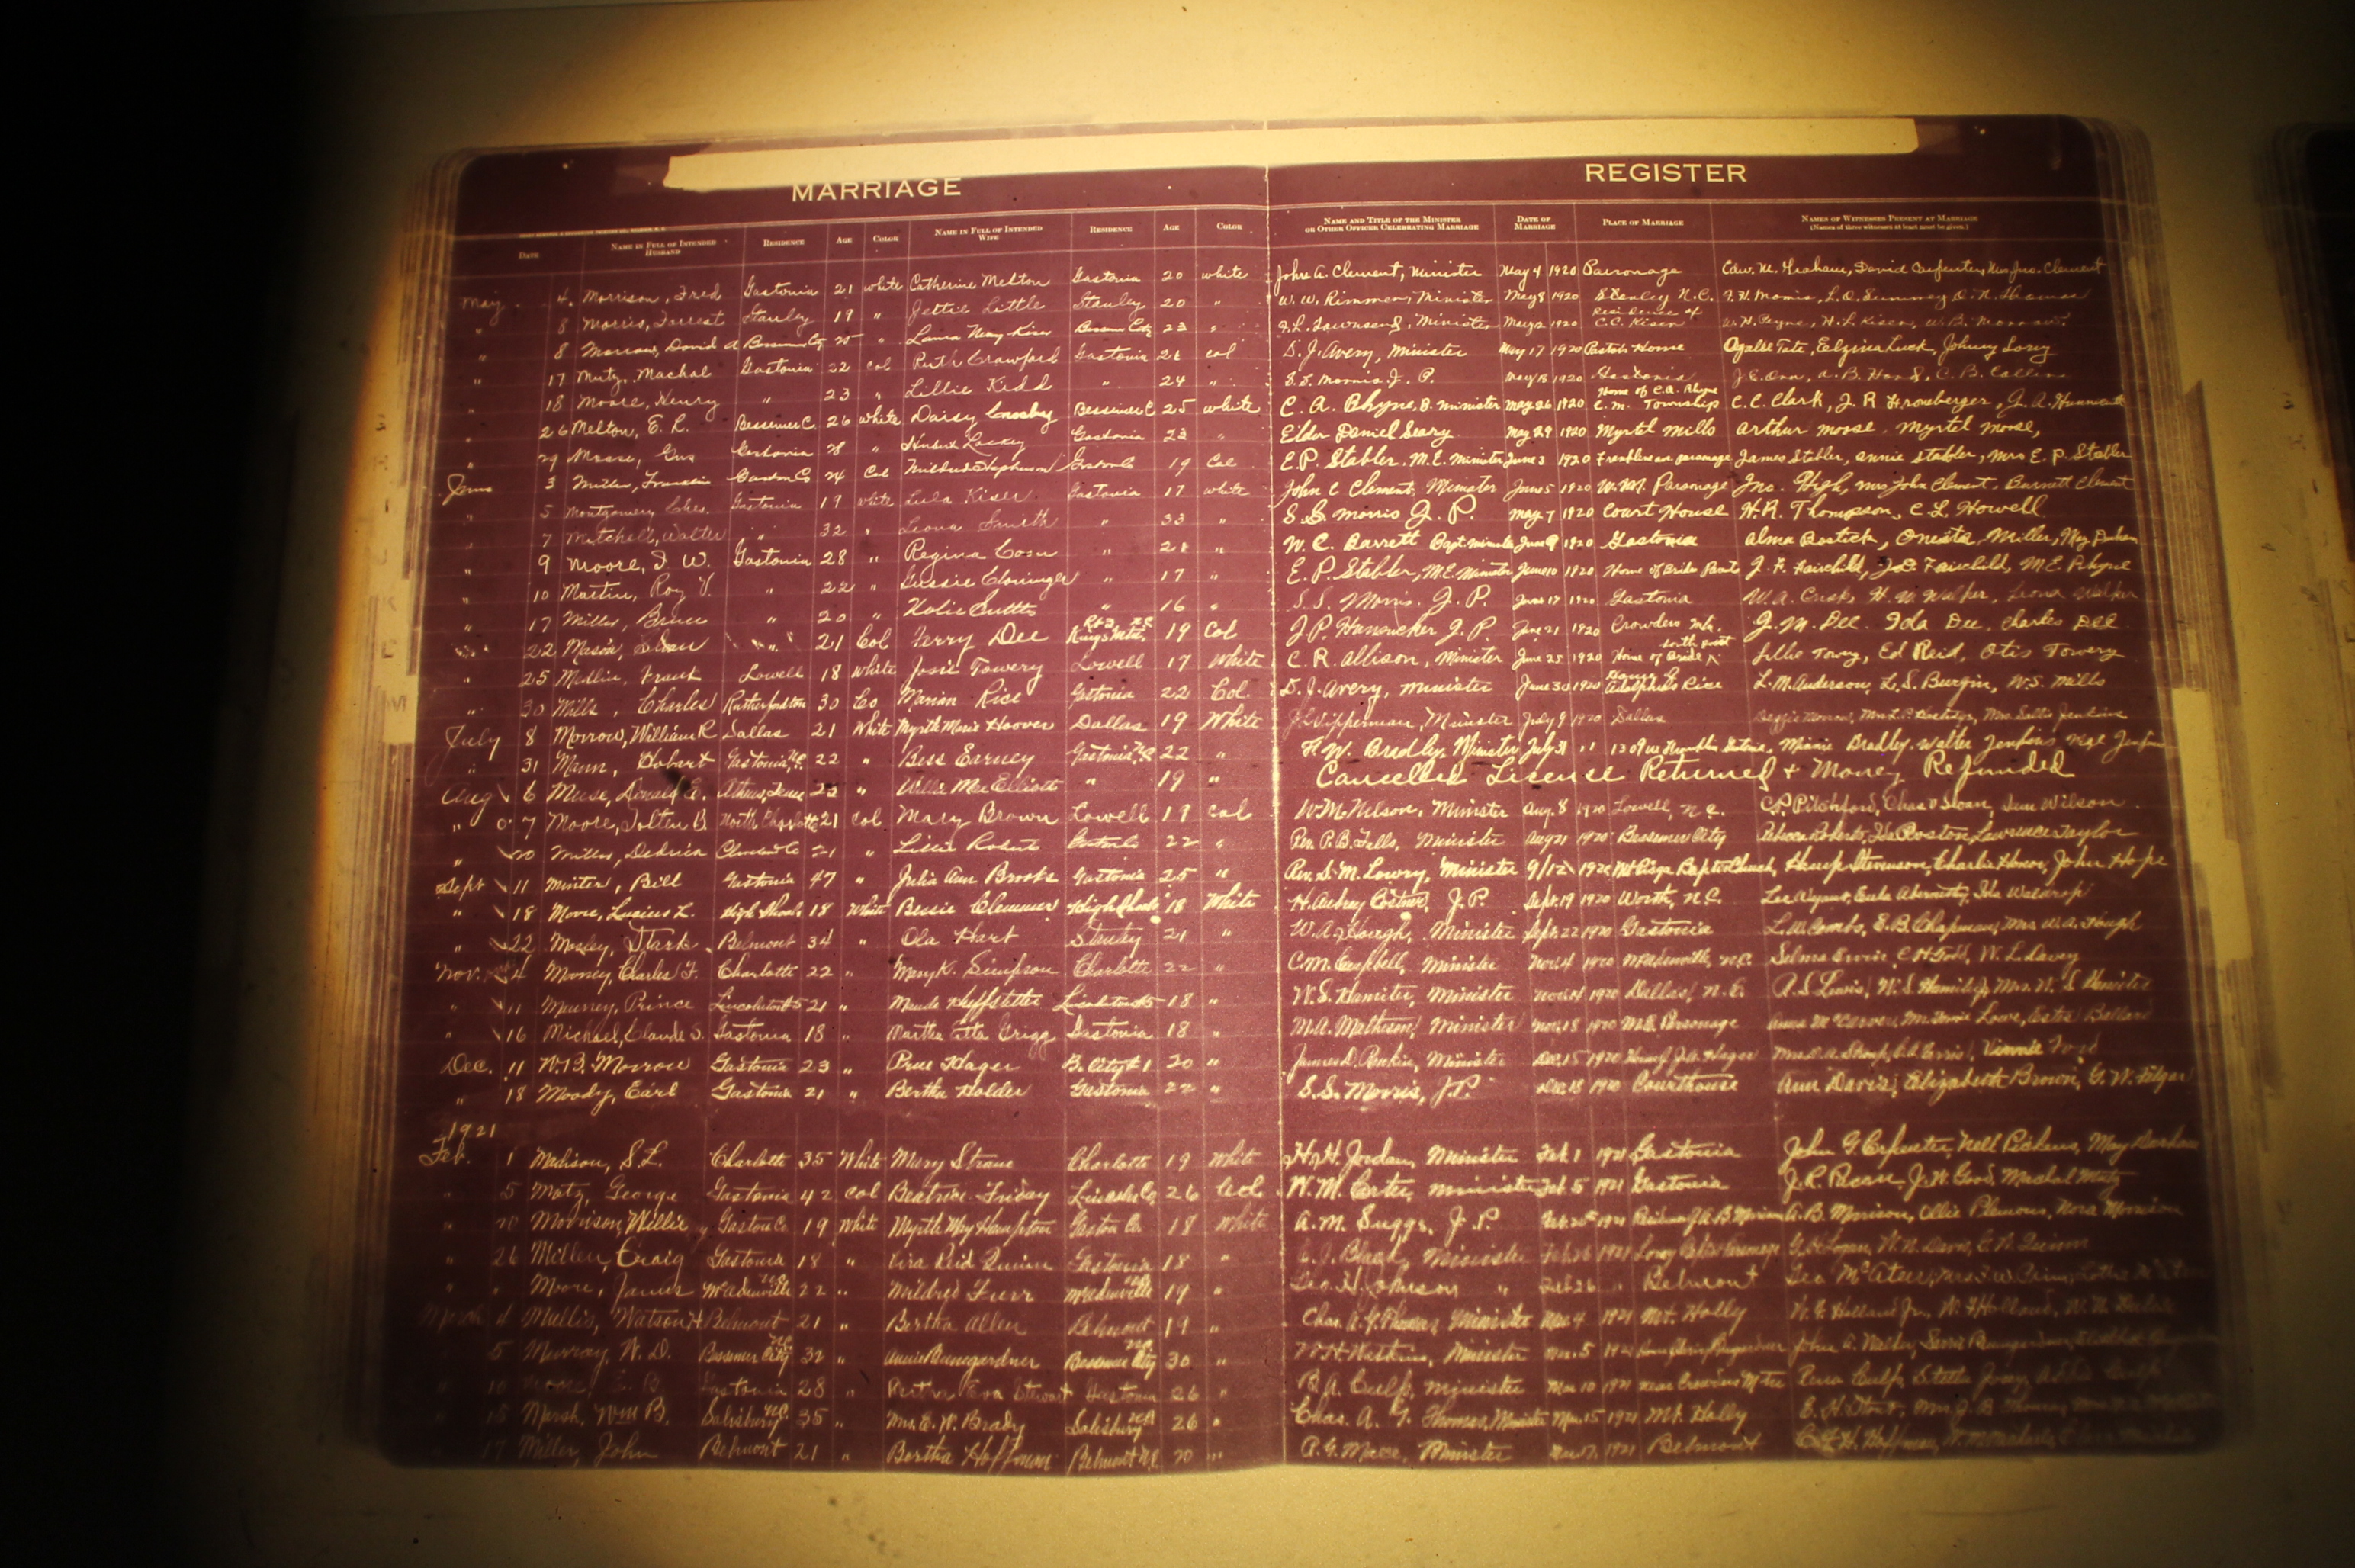 MARRIAGE REGISTER
DATE NAME IN FULL OF INTENDED HUSBAND RESIDENCE AGE COLOR NAME IN FULL OF INTENDED WIFE RESIDENCE AGE COLOR NAME AND TITLE OF THE MINISTER OR OTHER OFFICER CELEBRATING MARRIAGE DATE OF MARRIAGE PLACE OF MARRIAGE NAMES OF WITNESSES PRESENT AT MARRIAGE (Names of three witnesses at least must be given.)
May 4 Morrison, Fred Gastonia 21 white Catherine Melton Gastonia 20 white John A. Clement, Minister May 4 1920 Parsonage Edw. M. Graham, David Carpenter, Mrs Jno. Clement
" 8 Morris, Forrest Stanley 19 " Jettie Little Stanley 20 " W. W. Rimmer, Minister May 8 1920 Stanley N.C.
" 8 Morrow, David A Bessemer Cy " Laura Kiser Bessemer City 23 " Townsend, Minister May 2 1920 Residence of C.C. Kiser W. H. Payne, H. L. Kiser, W. B. Morrow
" 17 Mutz, Machal Gastonia 22 col Ruth Crawford Gastonia 21 col D. J. Avery, Minister May 17 1920 Pastor's Home Tate, Luck, Johnny
" 18 Moore, Henry " 23 " Lillie Kidd " 24 " S. S. Morris J. P. May 18 1920 Gastonia J. E. Orr, A. B. C. B. Collins
" 26 Melton, E. L. Bessemer C. 26 white Daisy Crosby Bessemer C 25 white C. A. Rhyne, B. minister May 26 1920 Home of C.A. Rhyne C. M. Township C. C. Clark, J. R. Hronberger,
" 29 Moose, Gus Gastonia 28 " Lackey Gastonia 23 " Elder Daniel Seary May 29 1920 Myrtle Mills Arthur Moose, Myrtel Moose,
June 3 Miller, Franklin Gaston Co 24 Col Mildred Stephenson Gaston Co 19 Col E. P. Stabler, M.E. Minister June 3 1920 Franklin av parsonage James Stabler, Annie Stabler, Mrs E. P. Stabler
" 5 Montgomery Ches. Gastonia 19 white Lula Kiser Gastonia 17 white John C Clement, Minister June 5 1920 W.M. Parsonage Jno. High, Mrs John Clement, Burnett Clement
" 7 Mitchell, Walter " 32 " Leona Smith " 33 " S. S. Morris J. P. May 7 1920 Court House H. R. Thompson, C. L. Howell
" 9 Moore, I W. Gastonia 28 " Regina " 21 " W. C. Barrett Bapt. Minister June 9 1920 Gastonia Alma Bostick, Oneita Miller, May Durham
" 10 Martin, Roy V. " 22 " Gussie Cloninger " 17 " E. P. Stabler, M.E. Minister June 10 1920 Home of Brides J. F. Fairchild, J. E. Fairchild, M. E. Rhyne
" 17 Mills, Bruce " 20 " " 16 " S. S. Morris J. P. June 17 1920 Gastonia W. A. Cusk, H. W. Walker, Leona Walker
" 22 Mason, " 21 Col Ferry Dee Kings Mtn. 19 Col J. P. Hunsucker J. P. June 21 1920 Crowders Mtn. J. M. Dee. Ida Dee, Charles Dee
" 25 Medlin, Frank Lowell 18 white Josie Towery Lowell 17 White C. R. Allison, Minister June 25 1920 Home of Bride south point Lillie Towry, Ed Reid, Otis Towery
" 30 Mills, Charles Rutherfordton 30 Co Marian Rice Gastonia 22 Col. D. J. Avery, Minister June 30 1920 Adolphus Rice L. M. Anderson, L. S. Burgin, W. S. Mills
July 8 Morrow, William R Dallas 21 White Myrtle Marie Hoover Dallas 19 White J. Lipperman, Minister July 9 1920 Dallas Morrow, Mrs. L. P. Mrs. Sallie Jenkins
" 31 Mann, Hobart Gastonia N.C. 22 " Bess Earney Gastonia N.C. 22 " F. W. Bradley, Minister July 31 " 1309 W Franklin Minnie Bradley, Walter Jenkins,
Aug 6 Muse, Donald C. Athens, Tenn 23 " Willie Mae Elliott " 19 " Cancelled License Returned + Money Refunded
" 7 Moore, Tolten B. North Charlotte 21 col Mary Brown Lowell 19 col W. M. Nelson, Minister Aug. 8 1920 Lowell, N.C. C. P. Pitchford, Chas Sloan, Wilson
" 20 Miller, Dedrick Co 21 " Lillie Roberts Gaston Co 22 " Rev. P. B. Falls, Minister Aug 21 1920 Bessemer City Rebecca Roberts, Ida Roston, Lawrence Taylor
Sept 11 Minter, Bill Gastonia 47 " Julia Ann Brooks Gastonia 25 " Rev. S. M. Lowry, Minister 9/12 1920 Mt Pisga Baptist Church, Hamp Stevenson, Charlie Hono, John Hope
" 18 Moore, Lucius L. High Shoals 18 White Bessie Clemmer High Shoals 18 White H. Aubrey Costner, J. P. Sept. 19 1920 Worth, N.C. Lee Wyant, Eula Abernethy, Ida Waldrop
" 22 Mosley, Stark Belmont 34 " Ola Hart Stanley 21 " W. A. Hough, Minister Sept. 22 1920 Gastonia L. W. Combs, E. B. Chapman, Mrs W. A. Hough
Nov. 4 Mooney, Charles F. Charlotte 22 " Mary K. Simpson Charlotte 22 " C. M. Campbell, Minister Nov. 4 1920 McAdenville, N.C. Selma Ervin, C H Todd, W. L. Davey
" 11 Mauney, Prince Lincolnton 21 " Maude Huffstetler Lincolnton 18 " W. S. Hamiter, Minister Nov. 14 1920 Dallas, N.C. R. S. Lewis, W. S. Hamiter Jr, Mrs. W. S Hamiter
" 16 Michael, Claude V. Gastonia 18 " Martha Etta Grigg Gastonia 18 " M. A. Matheson, Minister Nov. 18 1920 M.E. Parsonage Annie McCarver, Lowe, Ballard
Dec. 11 W. B. Morrow Gastonia 23 " Prue Hager B. City R1 20 " James D. Rankin, Minister Dec. 15 1920 Home of J. A. Hager Mrs. Vinnie Ford
" 18 Moody, Earl Gastonia 21 " Bertha Holder Gastonia 22 " S. S. Morris, J.P. Dec. 18 1920 Courthouse Ann Davis, Elizabeth Brown, G. W. Filyar
1921
Feb. 1 Madison, S. L. Charlotte 35 White Mary Strane Charlotte 19 White H. H. Jordan, Minister Feb. 1 1921 Gastonia John G Carpenter, Nell Pickens, May Durham
" 5 Motz, George Gastonia 42 col Beatrice Friday Lincoln Co. 26 Col. W. M. Carter, minister Feb. 5 1921 Gastonia J. R. Bean, J. W. Good, Machal Mutz
" 20 Morrison, Willie Gaston Co 19 White Myrtle May Hampton Gaston Co. 18 White A. M. Suggs, J. P. Feb. 20 1921 Residence J. A. B. Morrison A. B. Morrison, Ollie Plemons, Nora Morrison
" 26 Millen, Craig Gastonia 18 " Vira Reid Quinn Gastonia 18 " C. J. Black, Minister Feb 26 1921 Loray Baptist Parsonage Logan, W. N. Davis, Quinn
" " Moore, James McAdenville 22 " Mildred Furr McAdenville 19 " Geo. H. Johnson " Feb 26 " Belmont Geo McAteer,
March 4 Mullis, Watson H Belmont 21 " Bertha Allen Belmont 19 " Chas. A. G. Thomas, Minister Mar 4 1921 Mt. Holly W. F. Holland Jr, W. F. Holland,
" 5 Murray, W. D. Bessemer City N.C. 32 " Annie Baumgardner Bessemer City N.C. 30 " W. H. Watkins, Minister Mar. 5 1921
" 10 Moore, C. B. Gastonia 28 " Eva Stewart Gastonia 26 " R. A. Culp, Minister Mar 10 1921 near Crowders Mtn Culp, Stella Addie Culp
" 15 Marsh, Wm B. Salisbury N.C. 35 " Mrs. E. W. Brady Salisbury N.C. 26 " Chas. A. G. Thomas, Minister Mar. 15 1921 Mt. Holly
" 17 Miller, John Belmont 21 " Bertha Hoffman Belmont N.C. 20 " Minister Mar 17, 1921 Belmont Hoffman,